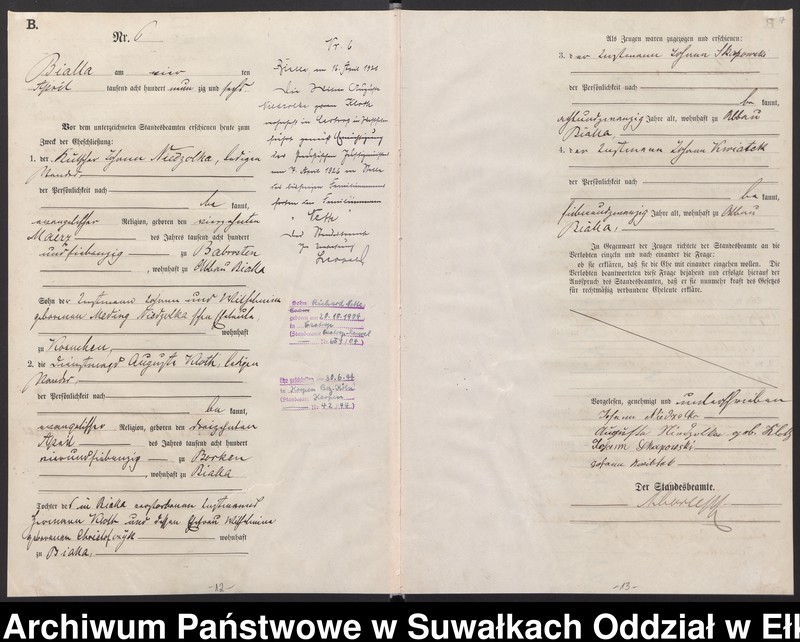 B.
Nr. 6
Bialla am vier ten
April tausend acht hundert neun zig und sechs
Vor dem unterzeichneten Standesbeamten erschienen heute zum
Zweck der Eheschließung:
1. der Kutscher Johann Niedzolka, ledigen
Standes
der Persönlichkeit nach
be kannt,
evangelischer Religion, geboren den vierzehnten
Maerz des Jahres tausend acht hundert
und siebenzig zu Babrosten
, wohnhaft zu Abbau Bialla
Sohn der Instmann Johann und Wilhelmine
geborenen Niedzolka schen Eheleute
wohnhaft
zu
2. die Dienstmagd Auguste Kloth, ledigen
Standes,
der Persönlichkeit nach
be kannt,
evangelischer Religion, geboren den dreizehnten
April des Jahres tausend acht hundert
vierundsiebenzig zu Borken
, wohnhaft zu Bialla
Tochter des in Bialla verstorbenen Instmanns
Hermann Kloth und dessen Ehefrau Wilhelmine
geborenen wohnhaft
zu Bialla,
-12-
Nr. 6
Bialla, am April 1926
Die Witwe Auguste
geborene Kloth
wohnhaft in
führt gemäß Ermächtigung
des Preußischen Justizministers
vom April 1926 an Stelle
des bisherigen Familiennamens
fortan den Familiennamen
Der Standesbeamte
In Vertretung
Sohn
geboren am 20.10.1904
in
(Standesamt
Nr.
30.6.44
in Kerpen Bz. Köln
(Standesamt Kerpen
Nr. 42/44)
Als Zeugen waren zugezogen und erschienen:
3. der Instmann Johann Skopowski
der Persönlichkeit nach
be kannt,
achtundzwanzig Jahre alt, wohnhaft zu Abbau
Bialla,
4. der Instmann Johann Kwiatek
der Persönlichkeit nach
be kannt,
siebenundzwanzig Jahre alt, wohnhaft zu Abbau
Bialla,
In Gegenwart der Zeugen richtete der Standesbeamte an die
Verlobten einzeln und nach einander die Frage:
ob sie erklären, daß sie die Ehe mit einander eingehen wollen. Die
Verlobten beantworteten diese Frage bejahend und erfolgte hierauf der
Ausspruch des Standesbeamten, daß er sie nunmehr kraft des Gesetzes
für rechtmäßig verbundene Eheleute erkläre.
Vorgelesen, genehmigt und unterschrieben
Johann Niedzolka
Auguste Niedzolka geb. Kloth
Johann Skopowski
Johann Kwiatek
Der Standesbeamte.
-13-
Archiwum Państwowe w Suwałkach Oddział w Eł